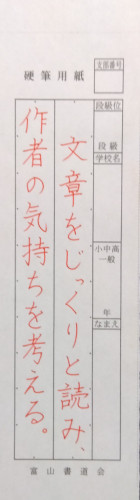 硬筆用紙
支部番号
段級位
段級
学校名
小中高
一般
年
なまえ
文章をじっくりと読み、
作者の気持ちを考える。
富山書道会